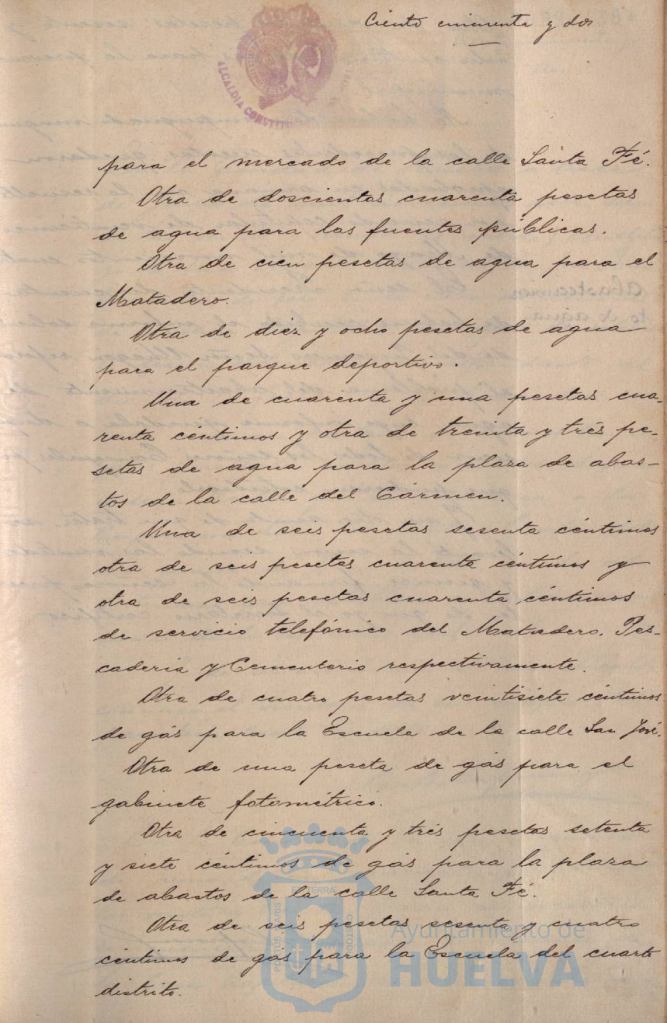 Ciento cincuenta y dos
ALCALDIA CONSTIT
para el mercado de la calle Santa Fé.
Otra de doscientas cuarenta pesetas
de agua para las fuentes publicas.
Otra de cien pesetas de agua para el
Matadero.
Otra de diez y ocho pesetas de agua
para el parque deportivo.
Una de cuarenta y una pesetas cua-
renta céntimos y otra de treinta y trés pe-
setas de agua para la plaza de abas-
tos de la calle del Cármen.
Una de seis pesetas sesenta céntimos
otra de seis pesetas cuarenta céntimos y
otra de seis pesetas cuarenta céntimos
de servicio telefónico del Matadero. Pes-
caderia y Cementerio respectivamente.
Otra de cuatro pesetas veintisiete céntimos
de gás para la Escuela de la calle San José.
Otra de una peseta de gás para el
gabinete fotométrico.
Otra de cincuenta y trés pesetas setenta
y siete céntimos de gás para la plaza
de abastos de la calle Santa Fé.
Otra de seis pesetas sesenta y cuatro
céntimos de gás para la Escuela del cuarto
distrito.
Ayuntamiento de
HUELVA